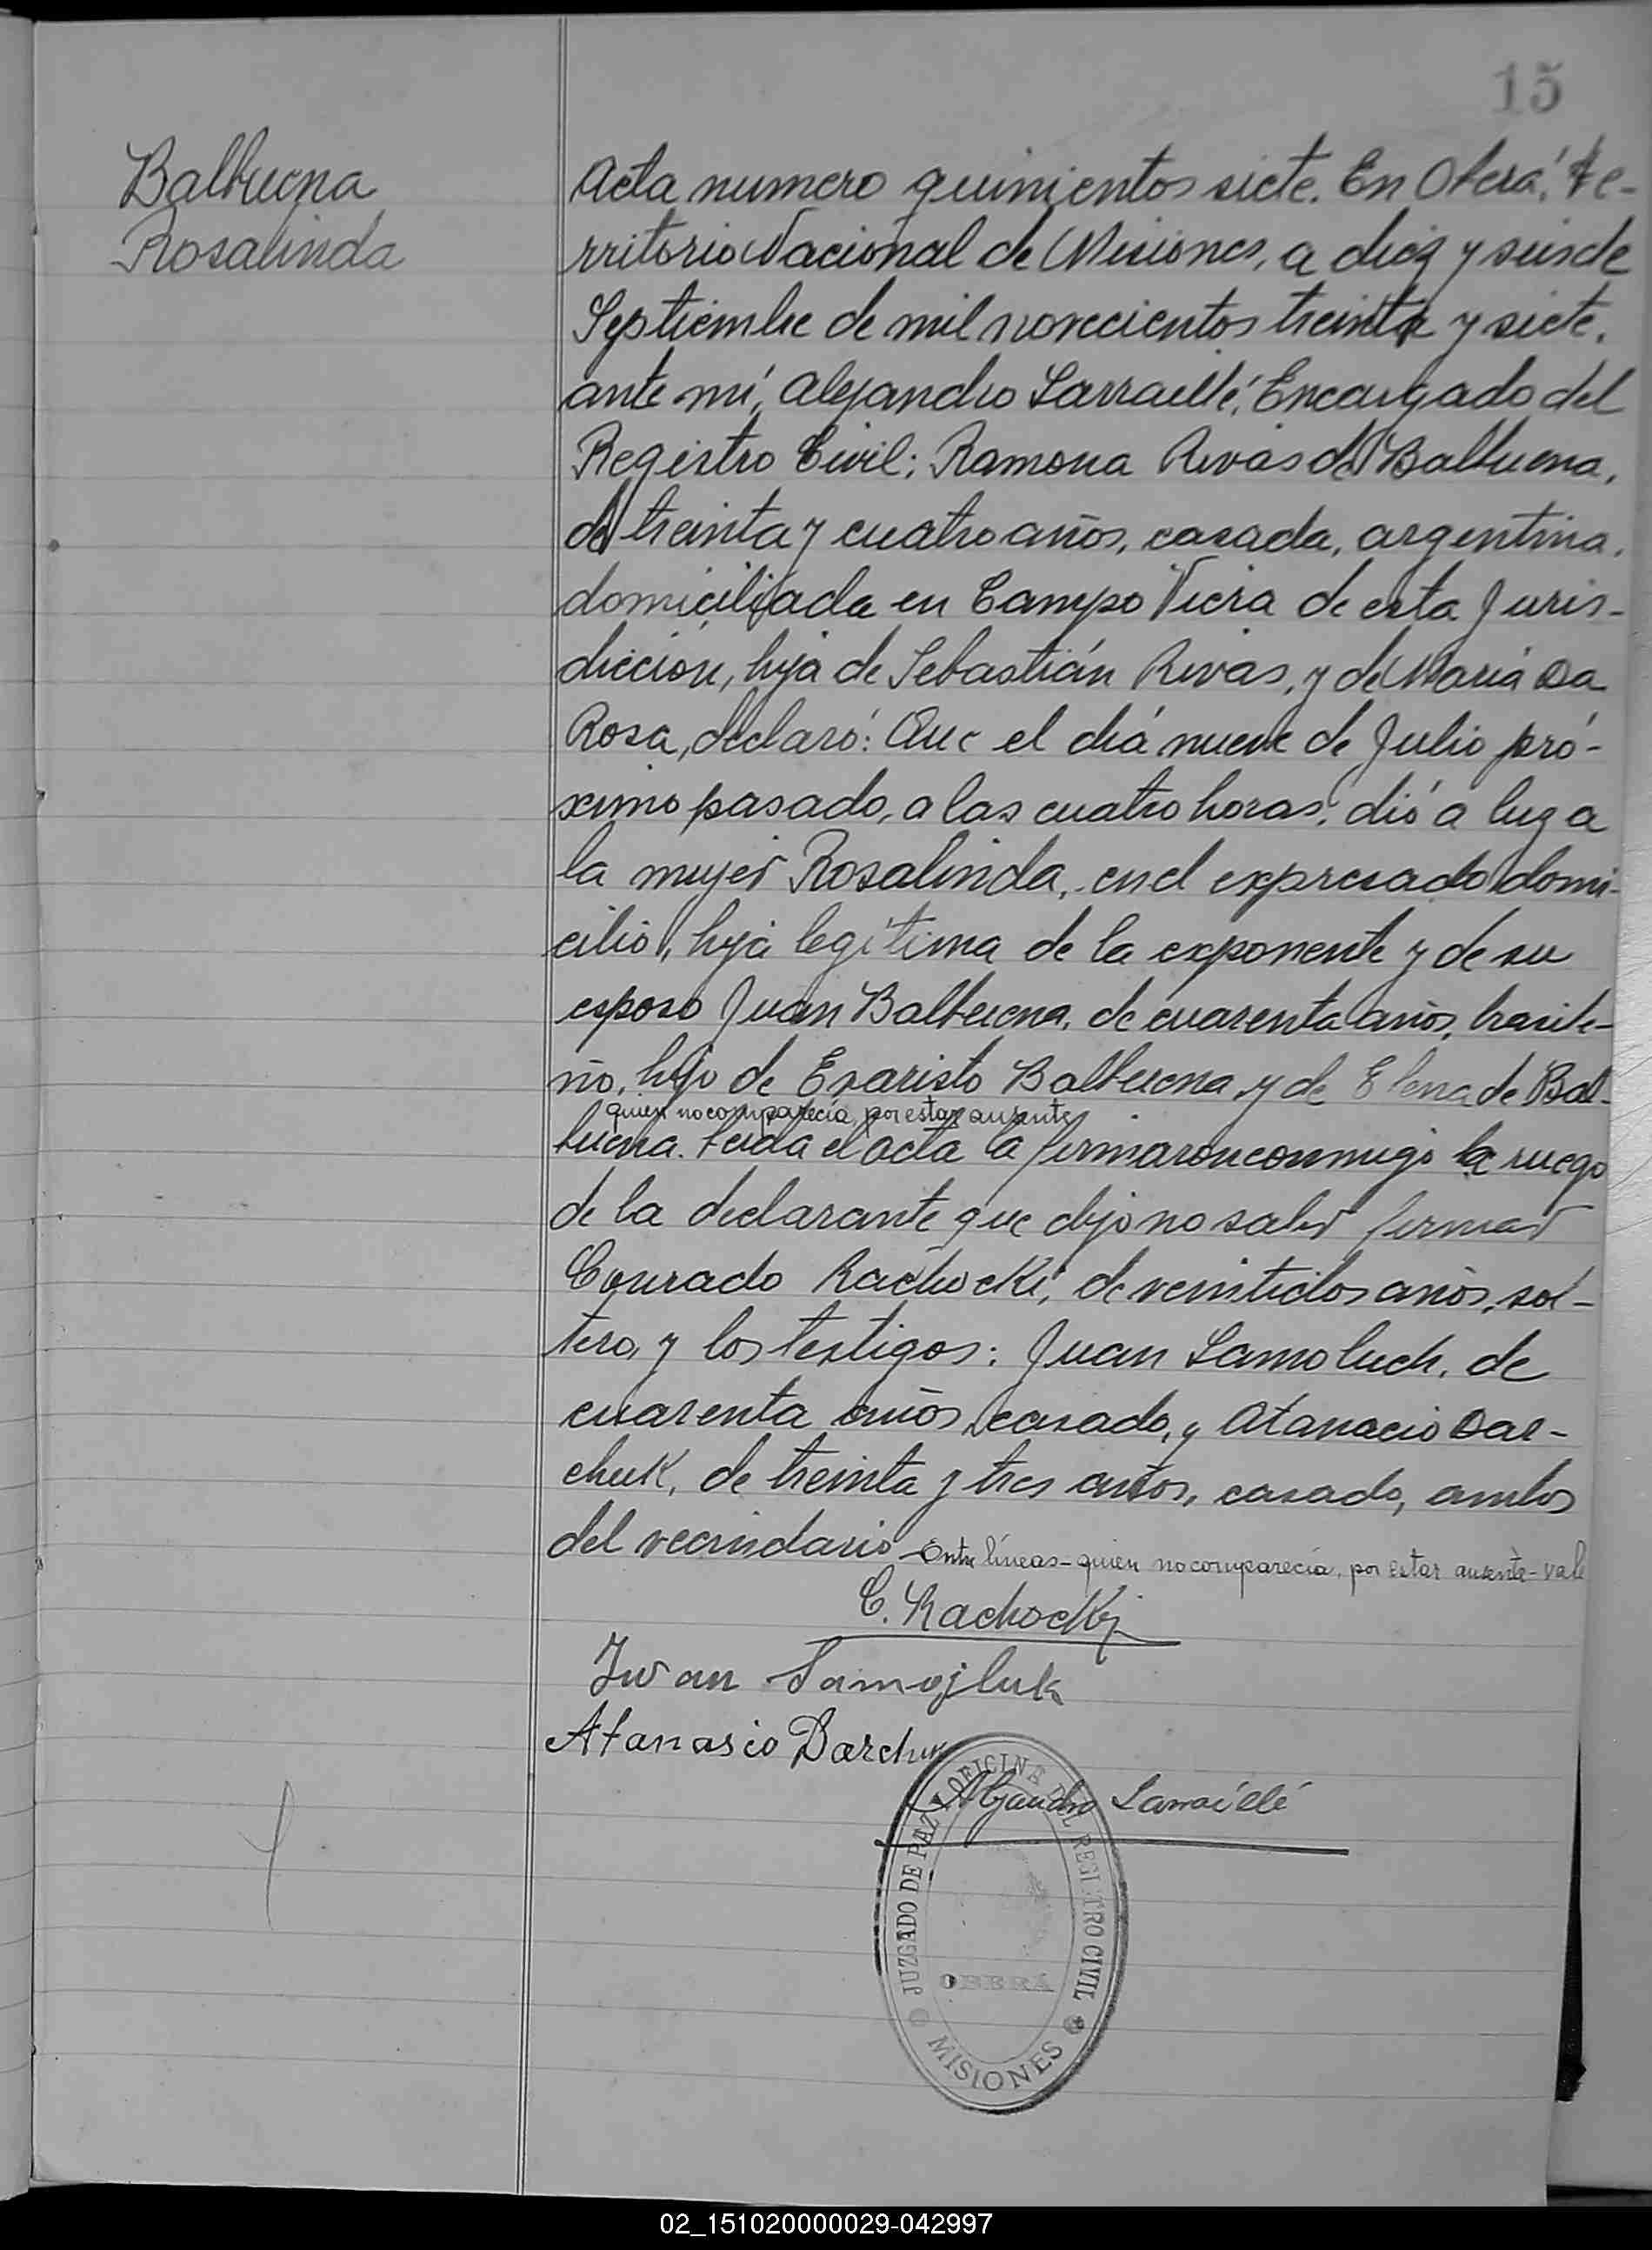 15
Balbuena
Rosalinda
Acta numero quinientos siete. En Oberá, Te-
rritorio Nacional de Misiones, a diez y seis de
Septiembre de mil novecientos treinta y siete,
ante mí, Alejandro Larraillé, Encargado del
Registro Civil; Ramona Rivas de Balbuena,
de treinta y cuatro años, casada, argentina,
domiciliada en Campo Viera de esta Juris-
dicción, hija de Sebastián Rivas, y de María Da
Rosa, declaró: Que el día nueve de Julio pró-
ximo pasado, a las cuatro horas, dió a luz a
la mujer Rosalinda, en el expresado domi-
cilio, hija legítima de la exponente y de su
esposo Juan Balbuena, de cuarenta años, brasile-
ño, hijo de Evaristo Balbuena y de Elena de Bal-
quien no comparecía, por estar ausente
buena. Leída el acta la firmaron conmigo a ruego
de la declarante que dijo no saber firmar
Conrado Rachocki, de veintidos años, sol-
tero, y los testigos: Juan Samoluch, de
cuarenta años, casado, y Atanacio Dar-
chuk, de treinta y tres años, casado, ambos
del vecindario - Entre líneas - quien no comparecía, por estar ausente - vale
C. Rachocki
Iwan Samojluk
Atanasio Darchuk
Alejandro Larraillé
JUZGADO DE PAZ Y OFICINA DEL REGISTRO CIVIL
OBERÁ
MISIONES
02_151020000029-042997